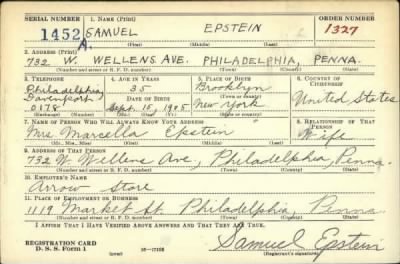 SERIAL NUMBER 1. NAME (Print) ORDER NUMBER
1452 SAMUEL EPSTEIN 1327
A. (First) (Middle) (Last)
2. ADDRESS (Print)
732 W. WELLENS AVE. PHILADELPHIA, PENNA.
(Number and street or R. F. D. number) (Town) (County) (State)
3. TELEPHONE 4. AGE IN YEARS 5. PLACE OF BIRTH 6. COUNTRY OF CITIZENSHIP
Philadelphia 35 Brooklyn
Davenport DATE OF BIRTH (Town or county) United States
0179 Sept. 15, 1905 New York
(Exchange) (Number) (Mo.) (Day) (Yr.) (State or country)
7. NAME OF PERSON WHO WILL ALWAYS KNOW YOUR ADDRESS 8. RELATIONSHIP OF THAT PERSON
Mrs Marcella Epstein Wife
(Mr., Mrs., Miss) (First) (Middle) (Last)
9. ADDRESS OF THAT PERSON
732 W. Wellens Ave, Philadelphia, Penna.
(Number and street or R. F. D. number) (Town) (County) (State)
10. EMPLOYER'S NAME
Arrow Store
11. PLACE OF EMPLOYMENT OR BUSINESS
1119 Market St. Philadelphia, Penna
(Number and street or R. F. D. number) (Town) (County) (State)
I AFFIRM THAT I HAVE VERIFIED ABOVE ANSWERS AND THAT THEY ARE TRUE.
REGISTRATION CARD
D. S. S. Form 1 Samuel Epstein
(Registrant's signature)